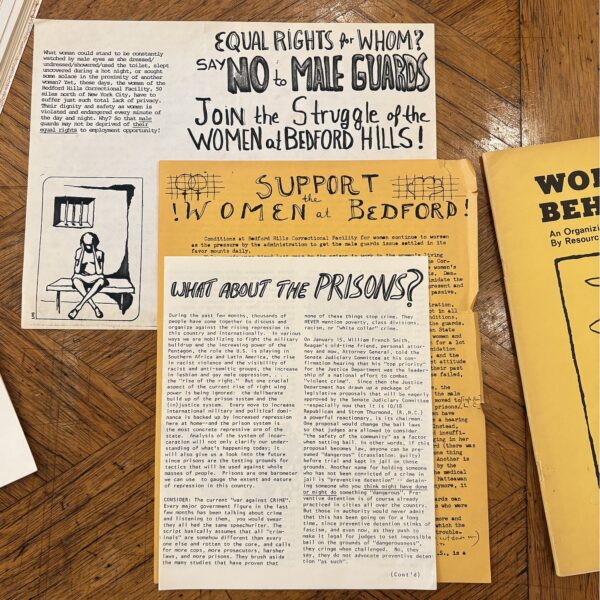 EQUAL RIGHTS for WHOM?
SAY NO to MALE GUARDS
JOIN the Struggle of the
WOMEN at BEDFORD HILLS!
What woman could stand to be constantly
watched by male eyes as she dressed/
undressed/showered/used the toilet, slept
uncovered during a hot night, or sought
some solace in the proximity of another
woman? Yet, these days, the women of the
Bedford Hills Correctional Facility, 50
miles north of New York City, have to
suffer just such total lack of privacy.
Their dignity and safety as women is
violated and endangered every minute of
the day and night. Why? So that male
guards may not be deprived of their
equal rights to employment opportunity!
SUPPORT
the
! WOMEN at BEDFORD!
Conditions at Bedford Hills Correctional Facility for women continue to worsen
as the pressure by the administration to get the male guards issue settled in its
favor mounts daily.
WHAT ABOUT THE PRISONS?
During the past few months, thousands of
people have come together to discuss and
organize against the rising repression in
this country and internationally. In various
ways we are mobilizing to fight the military
buildup and the increasing power of the
Pentagon, the role the U.S. is playing in
Southern Africa and Latin America, the rise
in racist violence and the visibility of
racist and anti-semitic groups, the increase
in lesbian and gay male oppression, ...
the "rise of the right." But one crucial
aspect of the current rise of right wing
power is being ignored: the deliberate
build up of the prison system and the
(in)justice system. Every move to increase
international military and political domi-
nation is backed up by increased repression
here at home--and the prison system is
the most concrete repressive arm of the
state. Analysis of the system of incar-
ceration will not only clarify our under-
standing of what's happening today; it
will also give us a look into the future
since prisons are the testing grounds for
tactics that will be used against whole
masses of people. Prisons are one barometer
we can use to gauge the extent and nature
of repression in this country.
CONSIDER: The current "war against CRIME".
Every major government figure in the last
few months has been talking about crime
and listening to them, you would swear
they all had the same speechwriter. The
script basically assumes that all "crim-
inals" are somehow different than every
one else and rotten to the core, and calls
for more cops, more prosecutors, harsher
laws, and more prisons. They brush aside
the many studies that have proven that
none of these things stop crime. They
NEVER mention poverty, class divisions,
racism, or "white collar" crime.
On January 15, William French Smith,
Reagan's old-time friend, personal attor-
ney and now, Attorney General, told the
Senate Judiciary Committee at his con-
firmation hearing that his "top priority"
for the Justice Department was the leader-
ship of a national effort to combat
"violent crime". Since then the Justice
Department has drawn up a package of
legislative proposals that will be eagerly
approved by the Senate Judiciary Committee
--especially now that it is 10/18
Republican and Strom Thurmond, (R.,N.C.)
a powerful reactionary, is its chairman.
One proposal would change the bail laws
so that judges are allowed to consider
"the safety of the community" as a factor
when setting bail. In other words, if this
proposal becomes law, anyone can be pre-
sumed "dangerous" (translation: guilty)
before trial and kept in jail on those
grounds. Another name for holding someone
who has not been convicted of a crime in
jail is "preventive detention" -- detain-
ing someone who you think might have done
or might do something "dangerous". Pre-
ventive detention is of course already
practiced in cities all over the country.
But those in authority would never admit
that this has been going on for a long
time, since preventive detention stinks of
fascism, and even now, as they push to
make it legal for judges to set impossible
bail on the grounds of "dangerousness",
they cringe when challenged. No, they
say, they do not advocate preventive deten-
tion "as such".
(Cont'd)
BEH
An Organizi
By Resourc